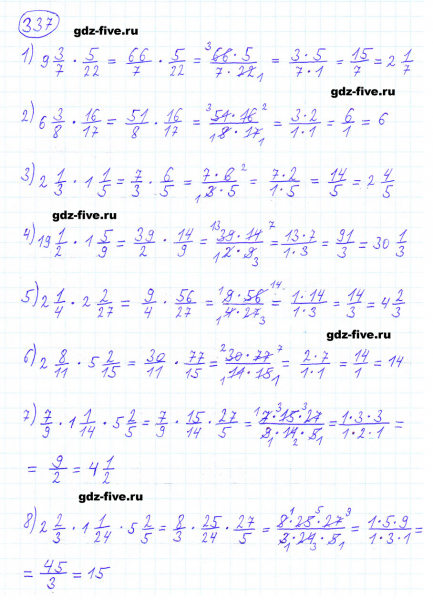 337 gdz-five.ru
1) 9 3/7 · 5/22 = 66/7 · 5/22 = 66 · 5 / 7 · 22 = 3 · 5 / 7 · 1 = 15/7 = 2 1/7
gdz-five.ru
2) 6 3/8 · 16/17 = 51/8 · 16/17 = 51 · 16 / 8 · 17 = 3 · 2 / 1 · 1 = 6/1 = 6
3) 2 1/3 · 1 1/5 = 7/3 · 6/5 = 7 · 6 / 3 · 5 = 7 · 2 / 1 · 5 = 14/5 = 2 4/5
gdz-five.ru
4) 19 1/2 · 1 5/9 = 39/2 · 14/9 = 39 · 14 / 2 · 9 = 13 · 7 / 1 · 3 = 91/3 = 30 1/3
5) 2 1/4 · 2 2/27 = 9/4 · 56/27 = 9 · 56 / 4 · 27 = 1 · 14 / 1 · 3 = 14/3 = 4 2/3
gdz-five.ru
6) 2 8/11 · 5 2/15 = 30/11 · 77/15 = 30 · 77 / 11 · 15 = 2 · 7 / 1 · 1 = 14/1 = 14
7) 7/9 · 1 1/14 · 5 2/5 = 7/9 · 15/14 · 27/5 = 7 · 15 · 27 / 9 · 14 · 5 = 1 · 3 · 3 / 1 · 2 · 1 =
= 9/2 = 4 1/2
gdz-five.ru
8) 2 2/3 · 1 1/24 · 5 2/5 = 8/3 · 25/24 · 27/5 = 8 · 25 · 27 / 3 · 24 · 5 = 1 · 5 · 9 / 1 · 3 · 1 =
= 45/3 = 15
gdz-five.ru